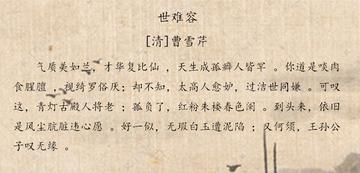 世难容
[清]曹雪芹
气质美如兰，才华复比仙 ，天生成孤癖人皆罕 。你道是啖肉
食腥膻 ，视绮罗俗厌；却不知，太高人愈妒，过洁世同嫌 。可叹
这，青灯古殿人将老 ；孤负了，红粉朱楼春色阑 。到头来，依旧
是风尘肮脏违心愿 。好一似，无瑕白玉遭泥陷 ；又何须，王孙公
子叹无缘 。